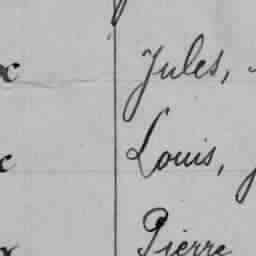 Jules,
Louis,
Pierre